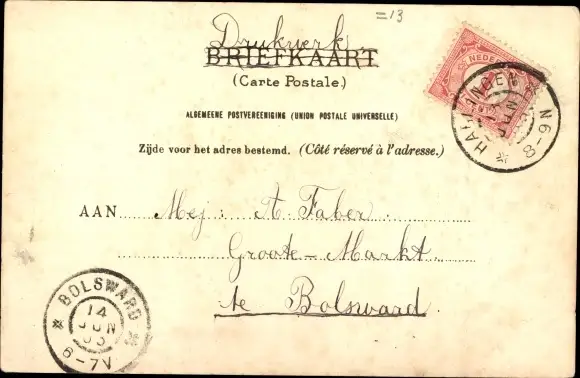 =13
Drukwerk
BRIEFKAART
(Carte Postale.)
ALGEMEENE POSTVEREENIGING (UNION POSTALE UNIVERSELLE)
Zijde voor het adres bestemd. (Côté réservé à l'adresse.)
NEDE
HARLINGEN
N 6-8
AAN Mej: A. Faber
Groote-Markt
te Bolsward.
BOLSWARD
14
JUN
6-7V